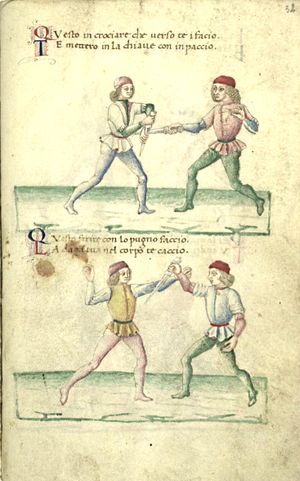 QVesto in crociare che verso te i facio
TE mettero in la chiaue con inpaccio.
QVesto ferire con lo pugno faccio
LA daga tua nel corpo te caccio.